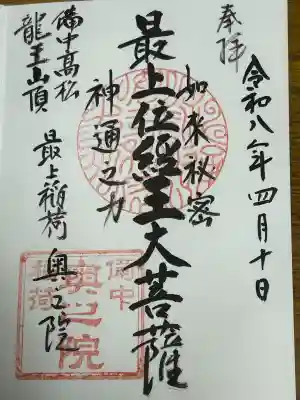 奉拝
令和八年四月十日
如来秘密
最上位經王大菩薩
神通之力
備中高松
龍王山頂
最上稲荷奥之院
備中
奥之院
稲荷